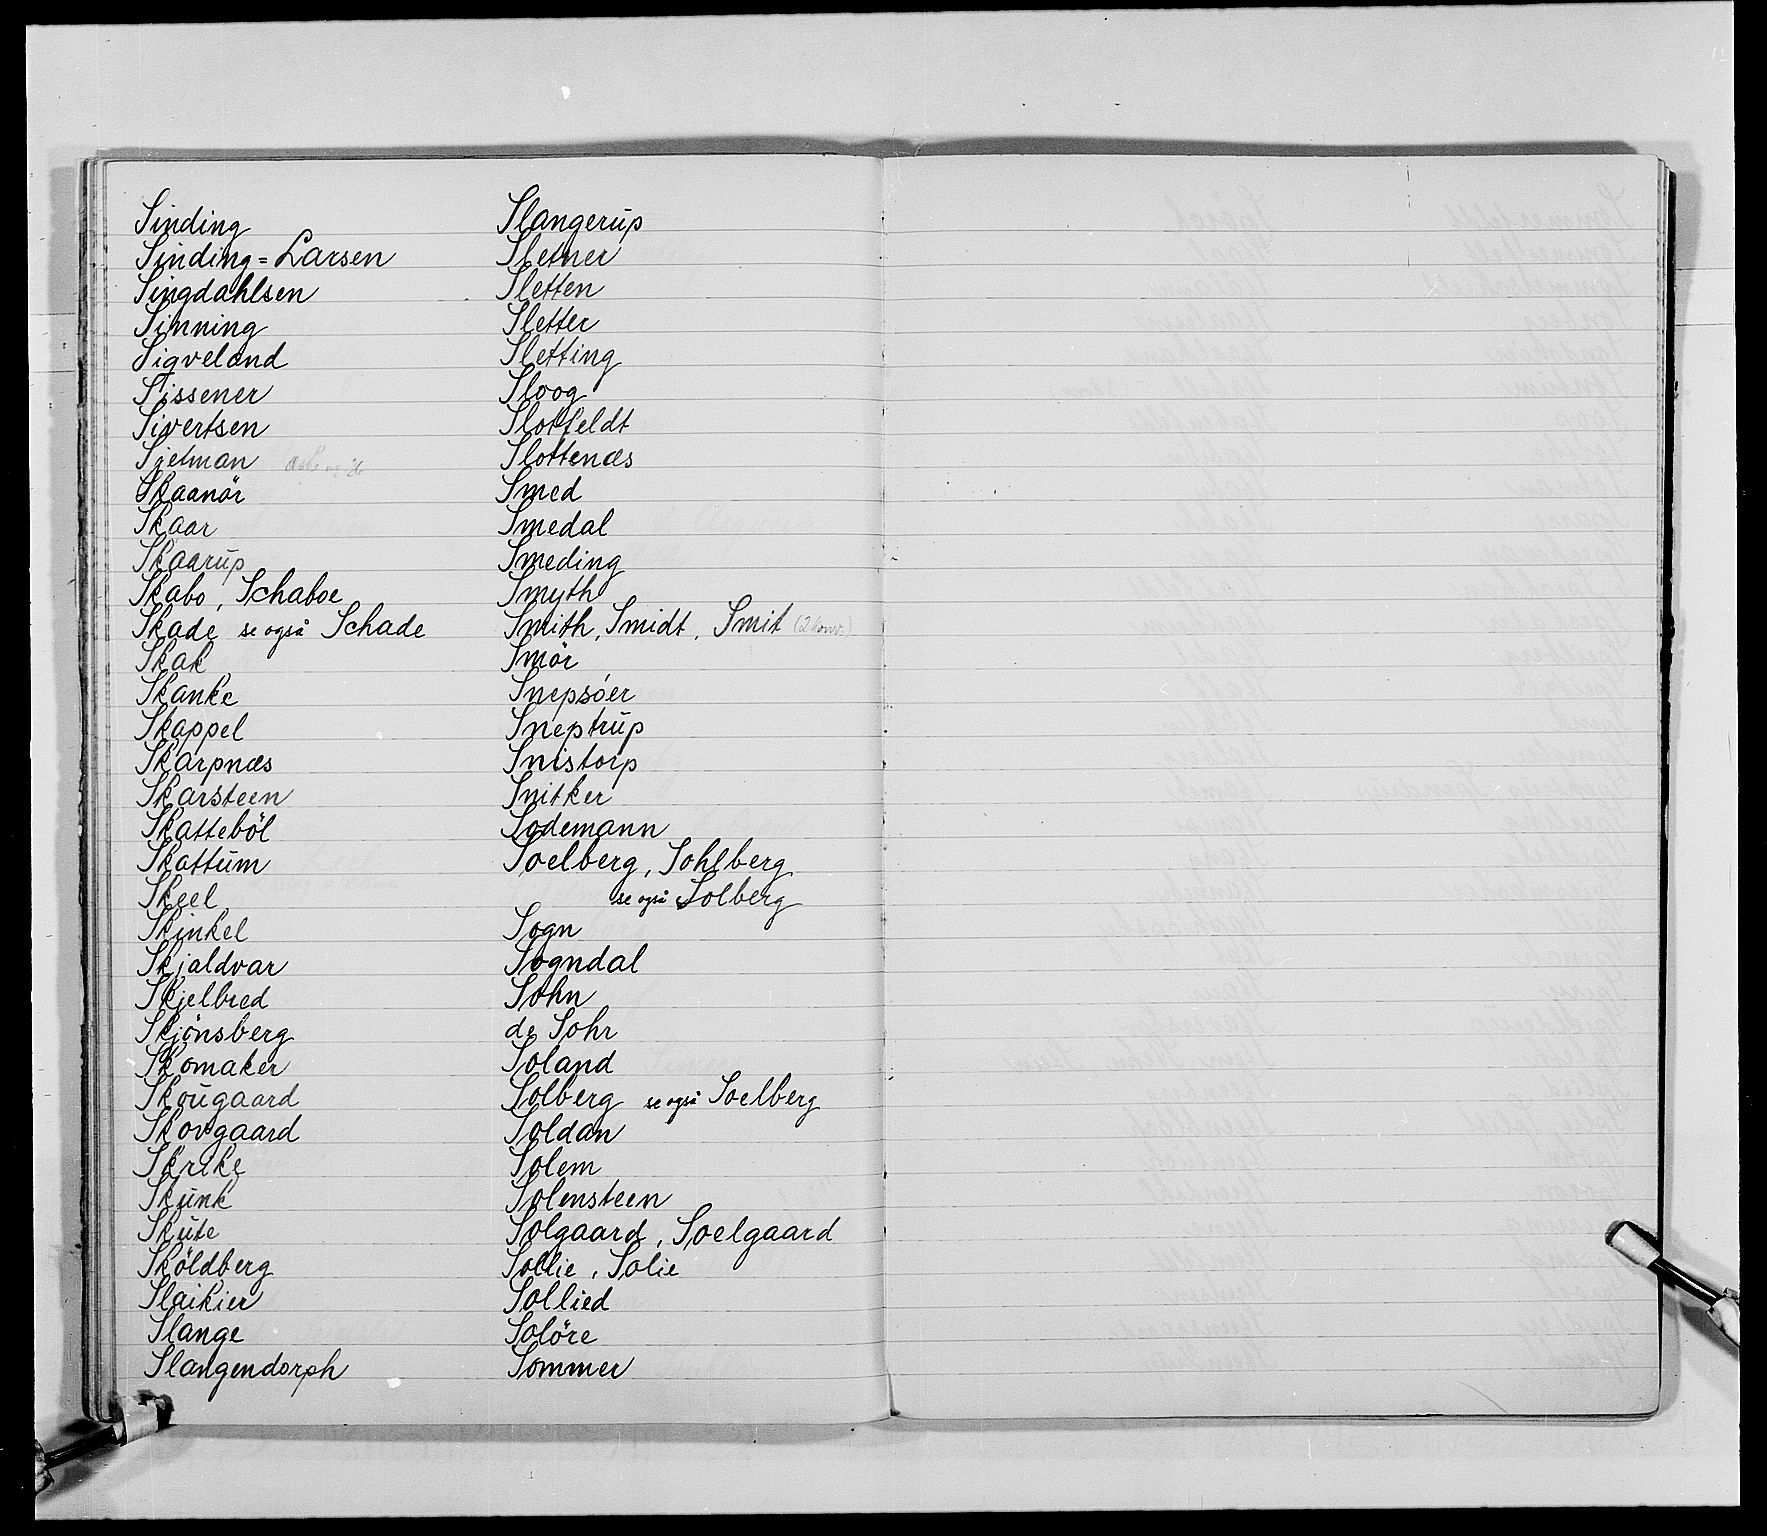 Sinding
Sinding=Larsen
Singdahlsen
Sinning
Sigveland
Sissener
Sivertsen
Sjetman
Skaanör
Skaar
Skaarup
Skabo, Schaboe
Skade se også Schade
Skak
Skanke
Skappel
Skarpnæs
Skarsteen
Skatteböl
Skattum
Skeel
Skinkel
Skjaldvar
Skjelbred
Skjönsberg
Skomaker
Skougaard
Skovgaard
Skrike
Skunk
Skute
Sköldberg
Slaikier
Slange
Slangendorph
Slangerup
Sletner
Sletten
Sletter
Sletting
Sloog
Slotfeldt
Slottenæs
Smed
Smedal
Smeding
Smyth
Smith, Smidt, Smit (2 konv.)
Smör
Snepsöer
Sneptrup
Snistorp
Snitker
Sodemann
Soelberg, Sohlberg
se også Solberg
Sogn
Sogndal
Sohn
de Sohr
Soland
Solberg se også Soelberg
Soldan
Solem
Solensteen
Solgaard, Soelgaard
Sollie, Solie
Sollied
Solöre
Sommer